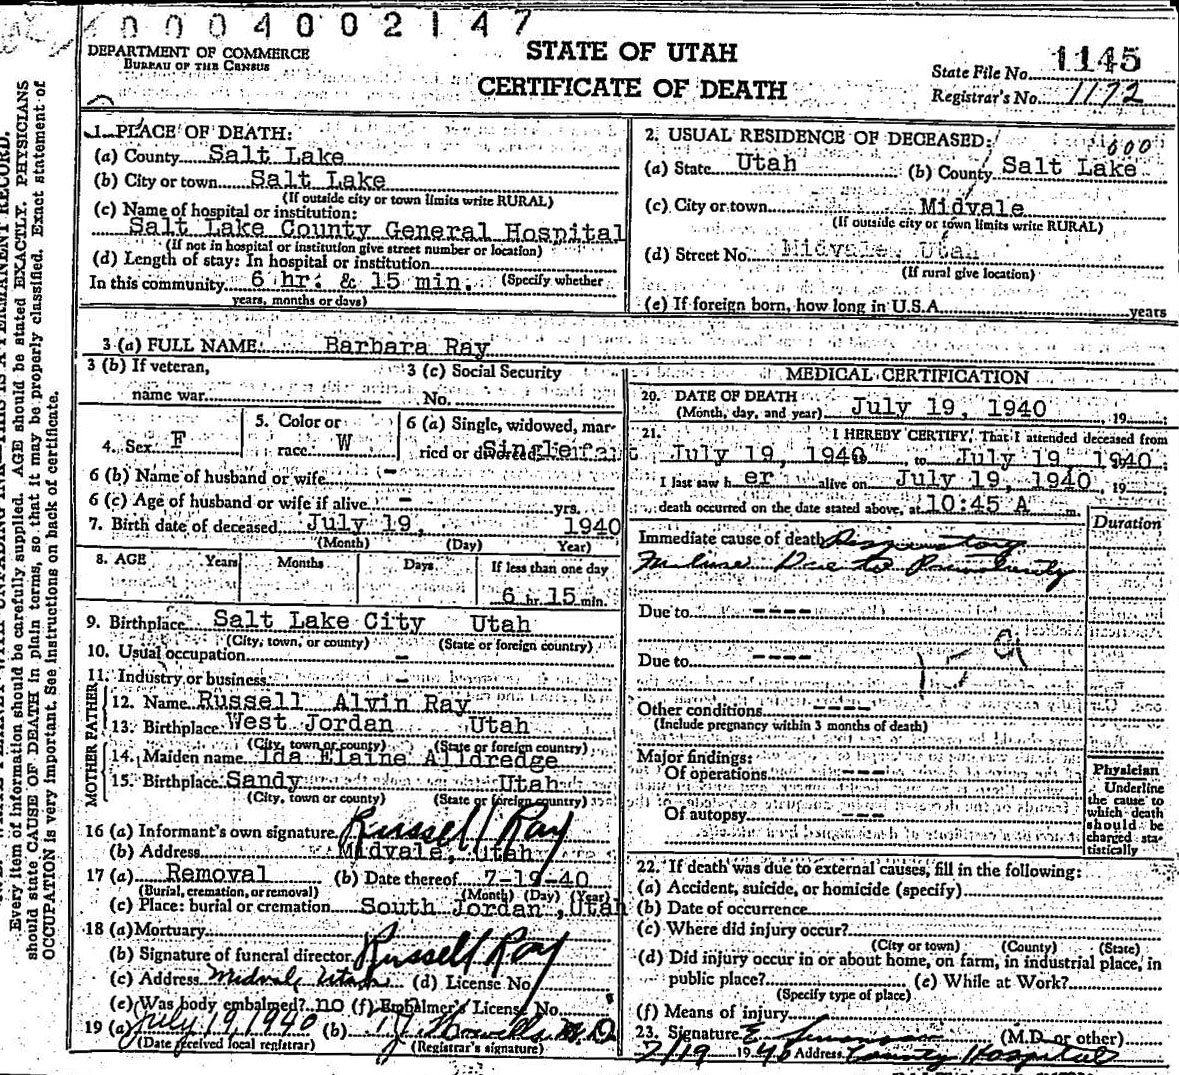 0004002147
DEPARTMENT OF COMMERCE
BUREAU OF THE CENSUS
STATE OF UTAH
CERTIFICATE OF DEATH
State File No. 1145
Registrar's No. 1172
1. PLACE OF DEATH:
(a) County Salt Lake
(b) City or town Salt Lake
(If outside city or town limits write RURAL)
(c) Name of hospital or institution:
Salt Lake County General Hospital
(If not in hospital or institution give street number or location)
(d) Length of stay: In hospital or institution
In this community 6 hr. & 15 min. (Specify whether
years, months or days)
2. USUAL RESIDENCE OF DECEASED:
(a) State Utah (b) County Salt Lake
(c) City or town Midvale
(If outside city or town limits write RURAL)
(d) Street No. Midvale, Utah
(If rural give location)
(e) If foreign born, how long in U.S.A. years
3 (a) FULL NAME: Barbara Ray
3 (b) If veteran,
name war
3 (c) Social Security
No.
4. Sex F
5. Color or
race W
6 (a) Single, widowed, mar-
ried or divorced Single
6 (b) Name of husband or wife -
6 (c) Age of husband or wife if alive - yrs.
7. Birth date of deceased July 19, 1940
(Month) (Day) Year)
8. AGE Years Months Days If less than one day
6 hr. 15 min.
9. Birthplace Salt Lake City Utah
(City, town, or county) (State or foreign country)
10. Usual occupation -
11. Industry or business -
FATHER
12. Name Russell Alvin Ray
13. Birthplace West Jordan Utah
(City, town or county) (State or foreign country)
MOTHER
14. Maiden name Ida Elaine Alldredge
15. Birthplace Sandy Utah
(City, town or county) (State or foreign country)
16 (a) Informant's own signature Russell Ray
(b) Address Midvale, Utah
17 (a) Removal (b) Date thereof 7-19-40
(Burial, cremation, or removal) (Month) (Day) (Year)
(c) Place: burial or cremation South Jordan, Utah
18 (a) Mortuary
(b) Signature of funeral director Russell Ray
(c) Address Midvale Utah (d) License No.
(e) Was body embalmed? no (f) Embalmer's License No.
19 (a) July 19, 1940 (b) M.D.
(Date received local registrar) (Registrar's signature)
MEDICAL CERTIFICATION
20. DATE OF DEATH
(Month, day, and year) July 19, 1940, 19
21. I HEREBY CERTIFY, That I attended deceased from
July 19, 1940 to July 19, 1940
I last saw her alive on July 19, 1940, 19
death occurred on the date stated above, at 10:45 A m.
Duration
Immediate cause of death Respiratory
Failure Due to Prematurity
Due to ----
Due to ----
159
Other conditions ----
(Include pregnancy within 3 months of death)
Major findings:
Of operations ---
Of autopsy ---
Physician
Underline
the cause to
which death
should be
charged sta-
tistically
22. If death was due to external causes, fill in the following:
(a) Accident, suicide, or homicide (specify)
(b) Date of occurrence
(c) Where did injury occur?
(City or town) (County) (State)
(d) Did injury occur in or about home, on farm, in industrial place, in
public place? (e) While at Work?
(Specify type of place)
(f) Means of injury
23. Signature (M.D. or other)
7/19 1940 Address County Hospital
Every item of information should be carefully supplied. AGE should be stated EXACTLY. PHYSICIANS
should state CAUSE OF DEATH in plain terms, so that it may be properly classified. Exact statement of
OCCUPATION is very important. See instructions on back of certificate.